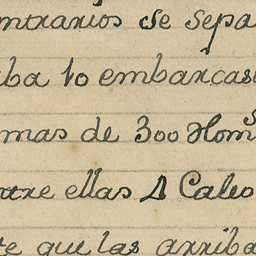 ntrarios se sepa
iba 10 embarcas
mas de 300 Homs
ntre ellas A Caleo
te que las arriba